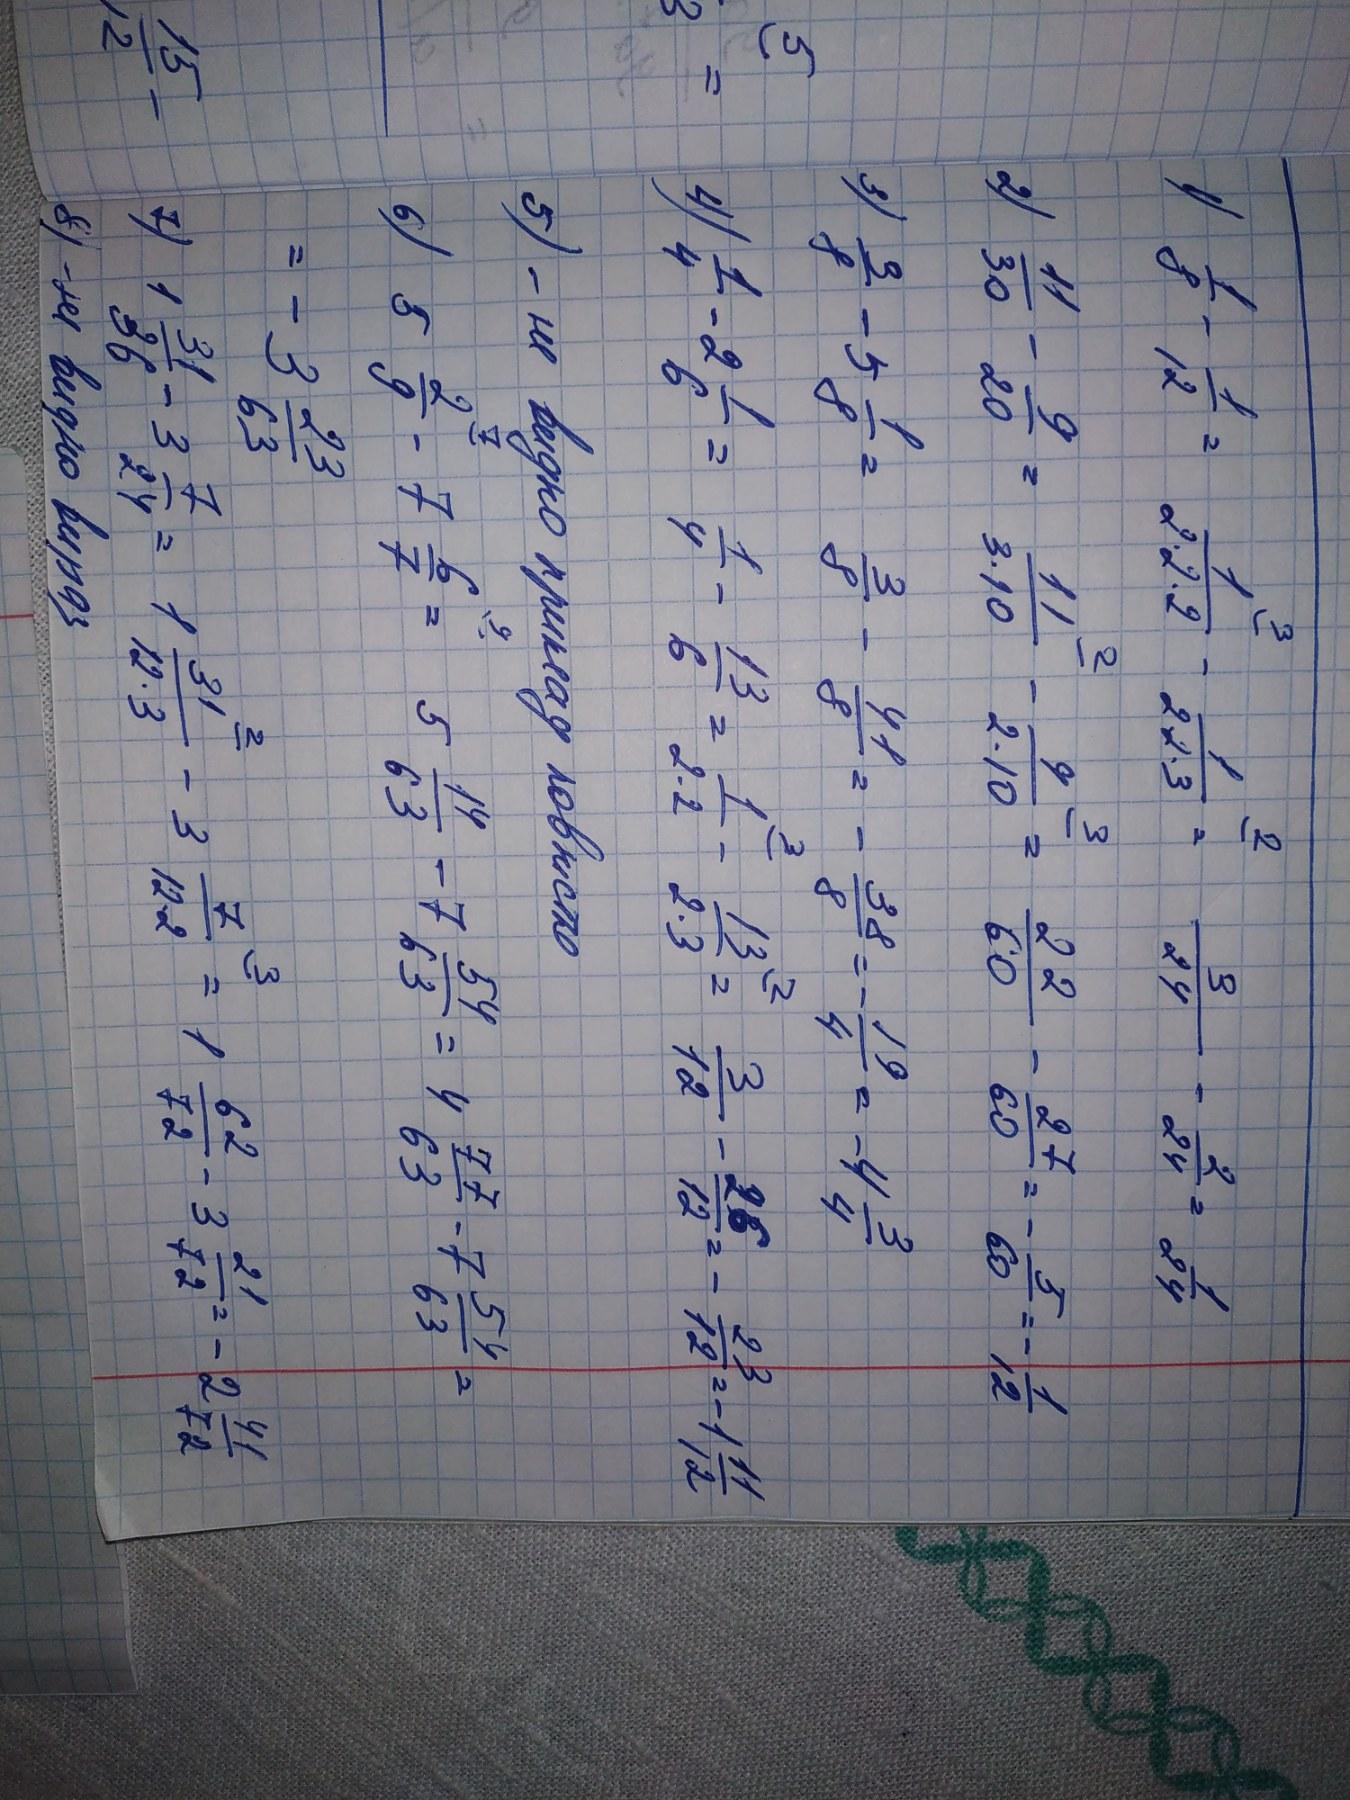 1) 1/8 - 1/12 = 1/(2·2·2) ⁽³ - 1/(2·2·3) ⁽² = 3/24 - 2/24 = 1/24
2) 11/30 - 9/20 = 11/(3·10) ⁽² - 9/(2·10) ⁽³ = 22/60 - 27/60 = - 5/60 = - 1/12
3) 3/8 - 5 1/8 = 3/8 - 41/8 = - 38/8 = - 19/4 = - 4 3/4
4) 1/4 - 2 1/6 = 1/4 - 13/6 = 1/(2·2) ⁽³ - 13/(2·3) ⁽² = 3/12 - 26/12 = - 23/12 = - 1 11/12
5) - не видно приклад повністю
6) 5 2/9 ⁽⁷ - 7 6/7 ⁽⁹ = 5 14/63 - 7 54/63 = 4 77/63 - 7 54/63 =
= - 3 23/63
7) 1 31/36 - 3 7/24 = 1 31/(12·3) ⁽² - 3 7/(12·2) ⁽³ = 1 62/72 - 3 21/72 = - 2 41/72
8) - не видно вираз
15/12 -
5
=